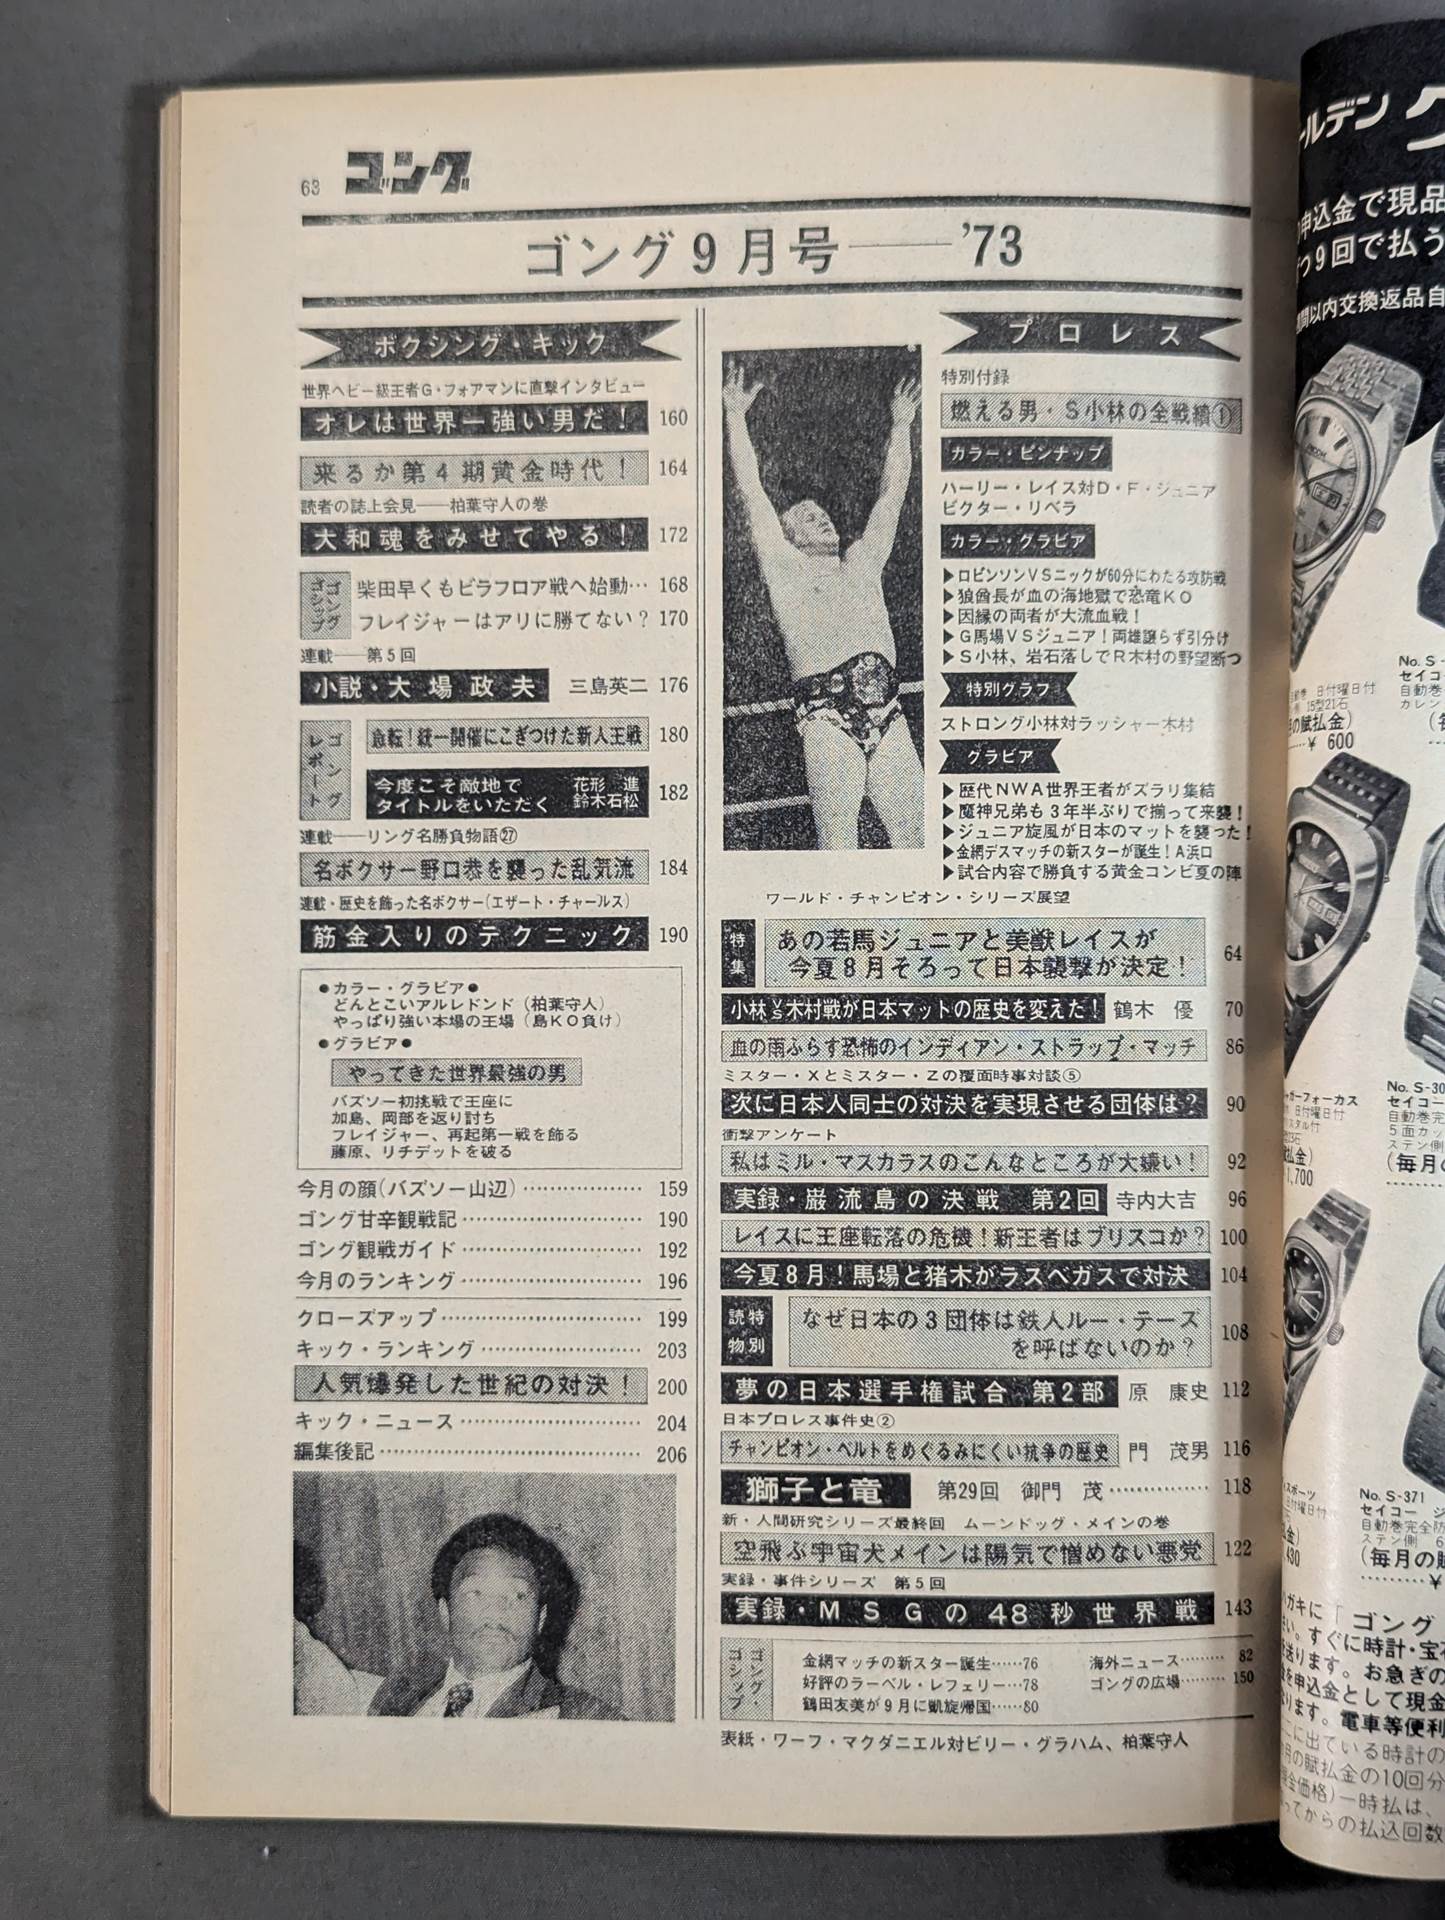 63 ゴング
ゴング9月号──'73
ボクシング・キック
世界ヘビー級王者G・フォアマンに直撃インタビュー
オレは世界一強い男だ! 160
来るか第4期黄金時代! 164
読者の誌上会見──柏葉守人の巻
大和魂をみせてやる! 172
ゴングゴシップ
柴田早くもビラフロア戦へ始動… 168
フレイジャーはアリに勝てない? 170
連載──第5回
小説・大場政夫 三島英二 176
ゴングレポート
急転!統一開催にこぎつけた新人王戦 180
今度こそ敵地で 花形 進
タイトルをいただく 鈴木石松 182
連載──リング名勝負物語㉗
名ボクサー野口恭を襲った乱気流 184
連載・歴史を飾った名ボクサー(エザート・チャールス)
筋金入りのテクニック 190
●カラー・グラビア●
どんとこいアルレドンド(柏葉守人)
やっぱり強い本場の王場(島KO負け)
●グラビア●
やってきた世界最強の男
バズソー初挑戦で王座に
加島、岡部を返り討ち
フレイジャー、再起第一戦を飾る
藤原、リチデットを破る
今月の顔(バズソー山辺)……………… 159
ゴング甘辛観戦記……………………… 190
ゴング観戦ガイド……………………… 192
今月のランキング……………………… 196
クローズアップ………………………… 199
キック・ランキング…………………… 203
人気爆発した世紀の対決! 200
キック・ニュース……………………… 204
編集後記………………………………… 206
プロレス
特別付録
燃える男・S小林の全戦績①
カラー・ピンナップ
ハーリー・レイス対D・F・ジュニア
ビクター・リベラ
カラー・グラビア
▶ロビンソンVSニックが60分にわたる攻防戦
▶狼酋長が血の海地獄で恐竜KO
▶因縁の両者が大流血戦!
▶G馬場VSジュニア!両雄譲らず引分け
▶S小林、岩石落しでR木村の野望断つ
特別グラフ
ストロング小林対ラッシャー木村
グラビア
▶歴代NWA世界王者がズラリ集結
▶魔神兄弟も3年半ぶりで揃って来襲!
▶ジュニア旋風が日本のマットを襲った!
▶金網デスマッチの新スターが誕生!A浜口
▶試合内容で勝負する黄金コンビ夏の陣
ワールド・チャンピオン・シリーズ展望
特集
あの若馬ジュニアと美獣レイスが
今夏8月そろって日本襲撃が決定! 64
小林VS木村戦が日本マットの歴史を変えた! 鶴木 優 70
血の雨ふらす恐怖のインディアン・ストラップ・マッチ 86
ミスター・Xとミスター・Zの覆面時事対談⑤
次に日本人同士の対決を実現させる団体は? 90
衝撃アンケート
私はミル・マスカラスのこんなところが大嫌い! 92
実録・巌流島の決戦 第2回 寺内大吉 96
レイスに王座転落の危機!新王者はブリスコか? 100
今夏8月!馬場と猪木がラスベガスで対決 104
特別読物
なぜ日本の3団体は鉄人ルー・テーズ
を呼ばないのか? 108
夢の日本選手権試合 第2部 原 康史 112
日本プロレス事件史②
チャンピオン・ベルトをめぐるみにくい抗争の歴史 門 茂男 116
獅子と竜 第29回 御門 茂…………… 118
新・人間研究シリーズ最終回 ムーンドッグ・メインの巻
空飛ぶ宇宙犬メインは陽気で憎めない悪党 122
実録・事件シリーズ 第5回
実録・MSGの48秒世界戦 143
ゴング・ゴシップ
金網マッチの新スター誕生……76
好評のラーベル・レフェリー…78
鶴田友美が9月に凱旋帰国……80
海外ニュース……… 82
ゴングの広場……… 150
表紙・ワーフ・マクダニエル対ビリー・グラハム、柏葉守人
ールデン
申込金で現品
9回で払う
以内交換返品自
日付曜日付
15型21石
の賦払金)
……¥ 600
セイコー
自動巻
カレン
ャガーフォーカス
日付曜日付
1,700
No. S-30
セイコー
自動巻完
5面カッ
ステン側
(毎月の
No. S-371
セイコー ジ
自動巻完全防
ステン側 6
(毎月の賦
………¥
430
ガキに「ゴング
い。すぐに時計・宝石
送ります。お急ぎの
を申込金として現金
ります。電車等便利
に出ている時計の
月の賦払金の10回分
金価格)一時払は、
ってからの払込回数